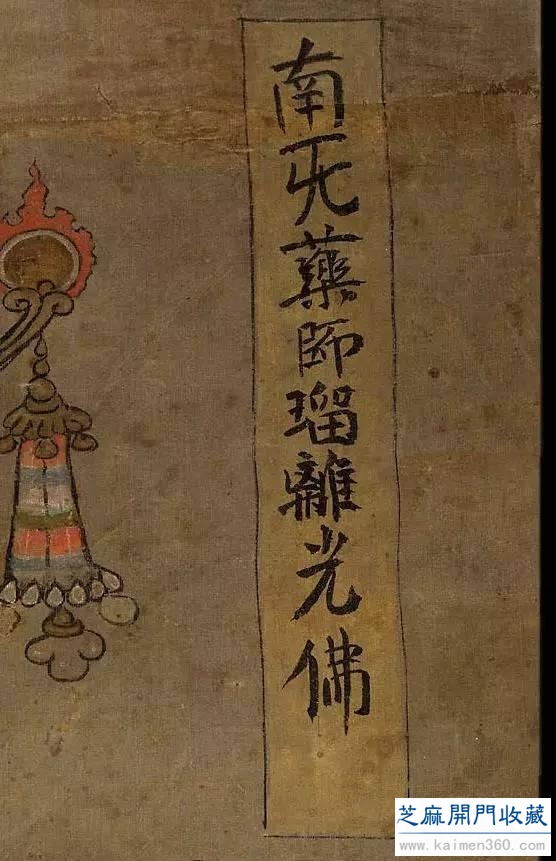 南无藥師瑠離光佛
芝麻開門收藏
www.kaimen360.com